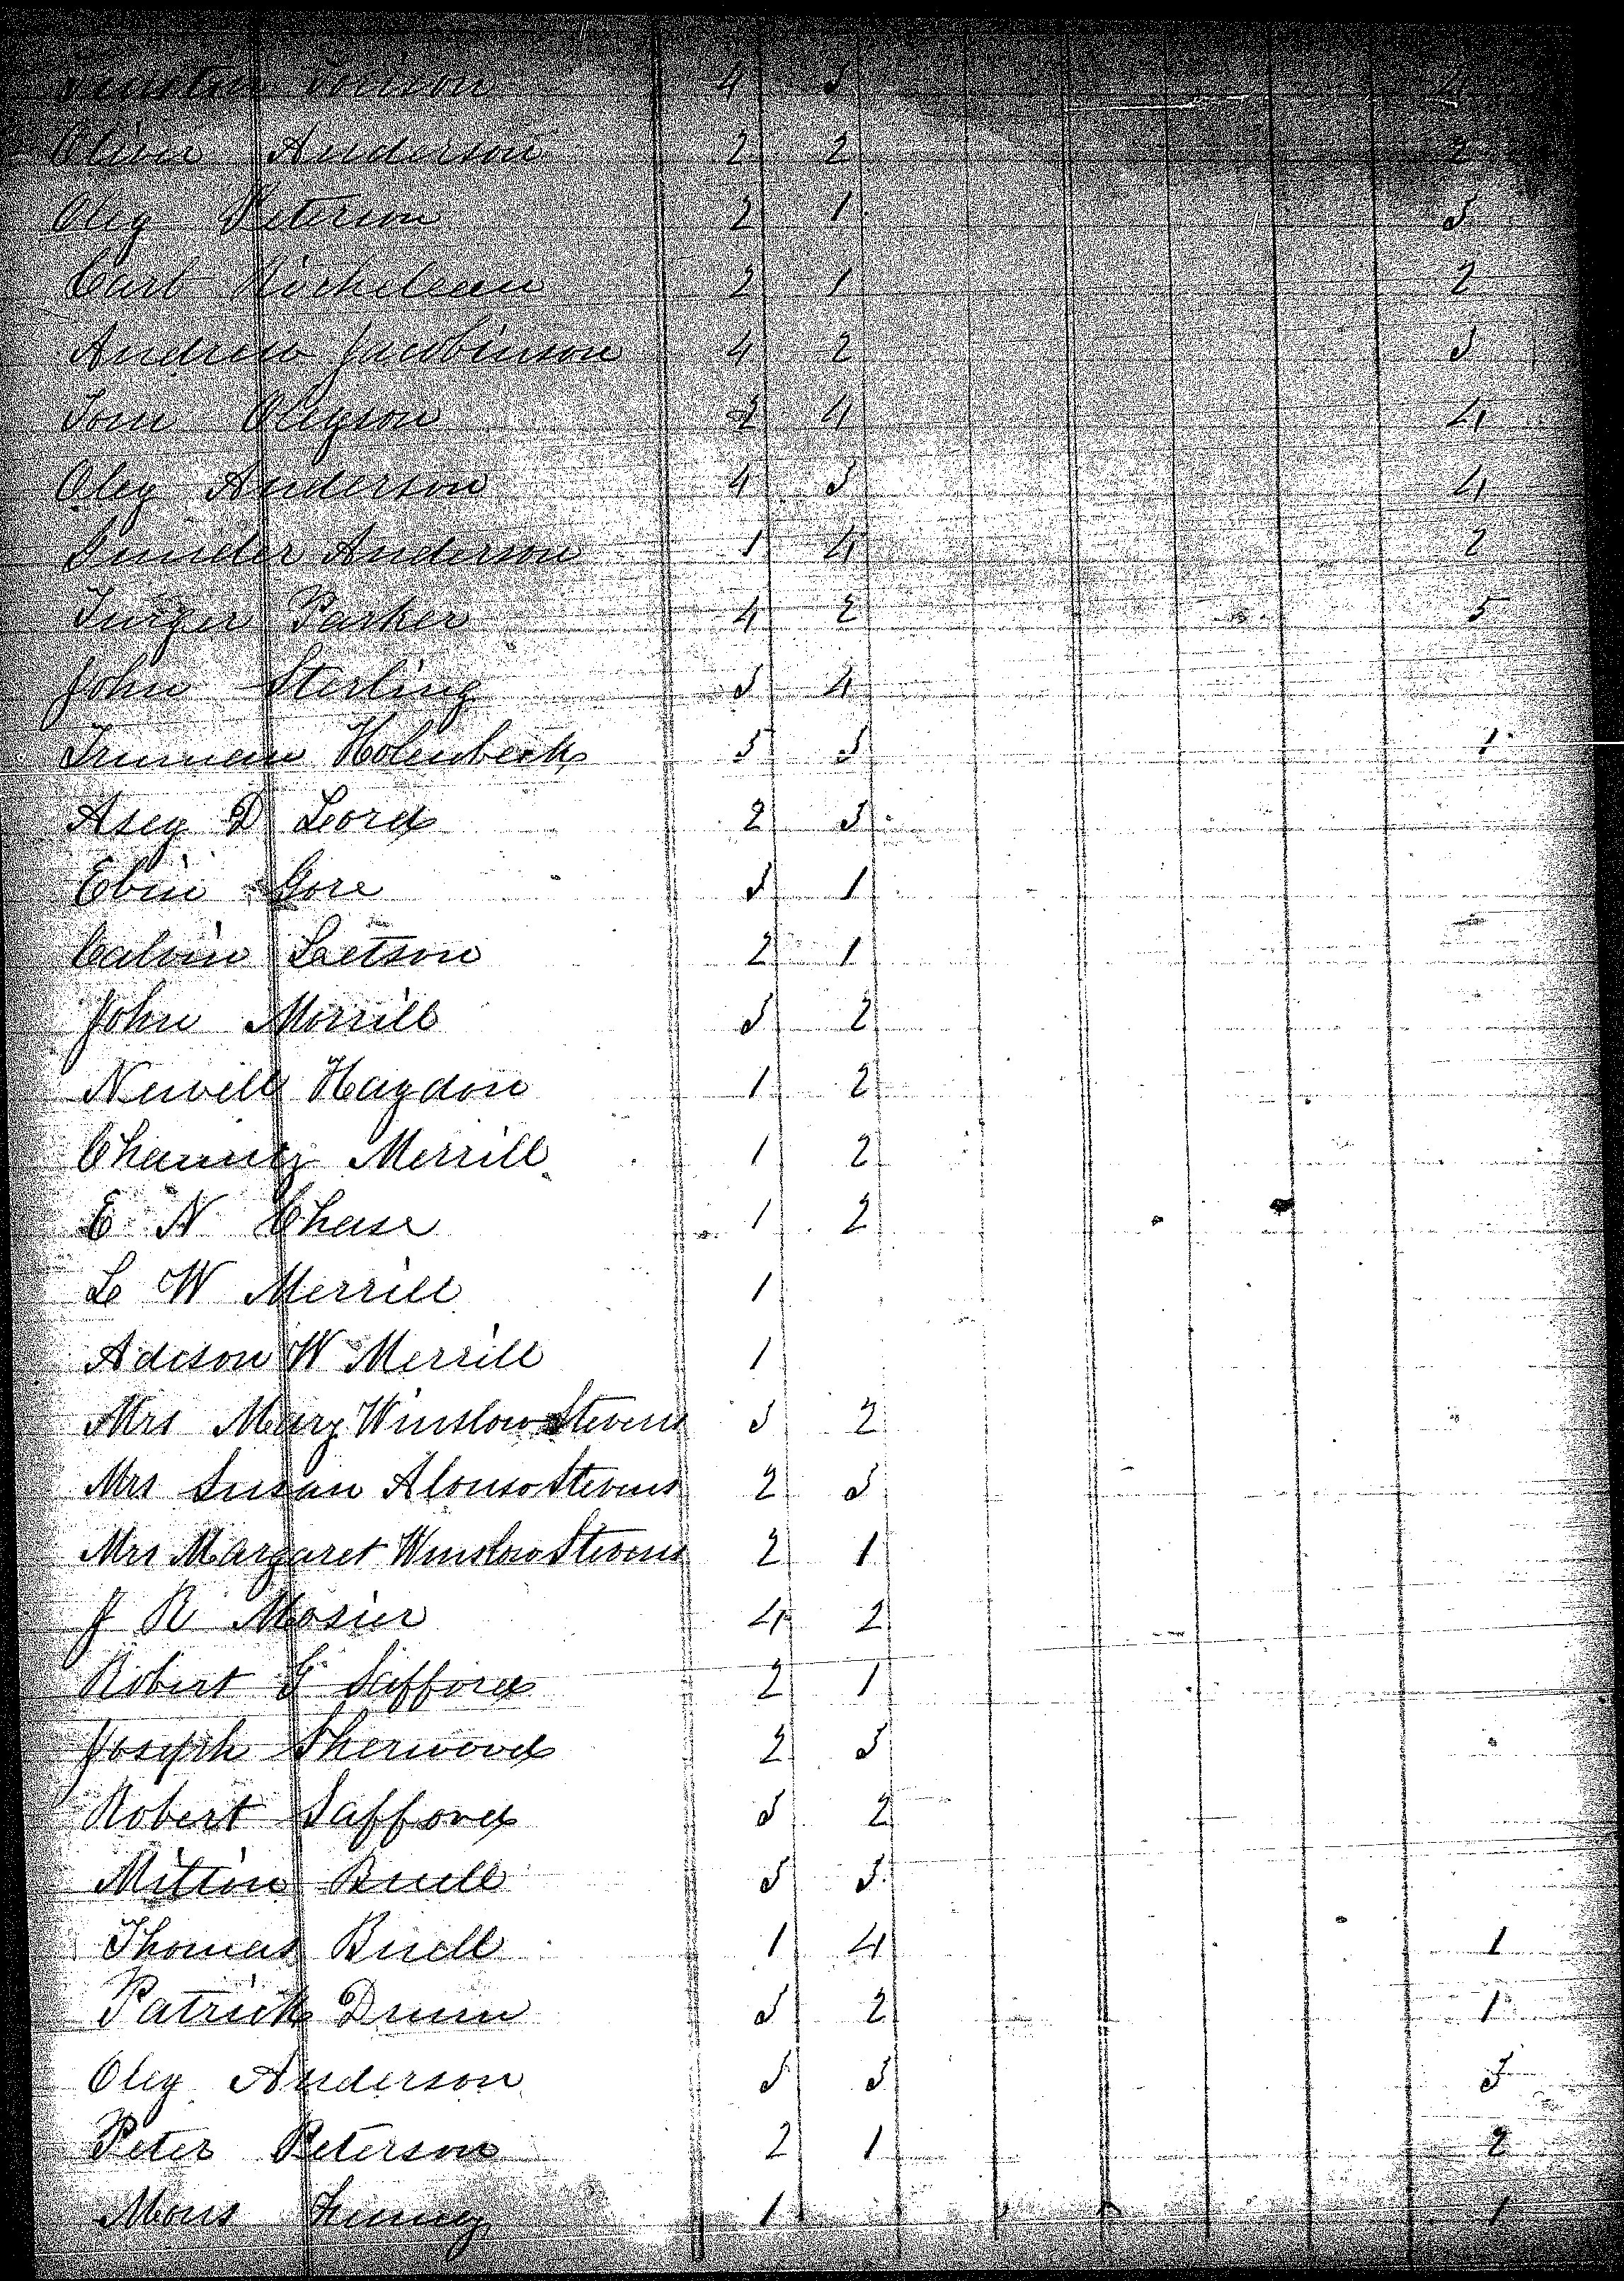 4 3 4
Oliver Anderson 2 2 2
Oley Peterson 2 1 3
Carl 2 1 2
Andrew Jacobinson 4 2 3
Tom Oleyson 2 4 4
Oley Anderson 4 3 4
Gunder Anderson 1 4 2
Parker 4 2 5
John Sterling 3 4
Truman Holenbeck 5 3 1
Asey D Lord 2 3
Ebin Gore 3 1
Calvin Letson 2 1
John Morrill 3 2
Newell Haydon 1 2
Chauncy Merrill 1 2
E N Chase 1 2
L W Merrill 1
Adison W Merrill 1
Mrs Mary Winslow Stevens 3 2
Mrs Susan Alonso Stevens 2 3
Mrs Margaret Winslow Stevens 2 1
J R Mosier 4 2
Robert G Safford 2 1
Joseph Sherwood 2 3
Robert Safford 3 2
Milton Buell 3 3
Thomas Buell 1 4 1
Patrick Drum 3 2 1
Oley Anderson 3 3 3
Peter Peterson 2 1 2
Mons 1 1